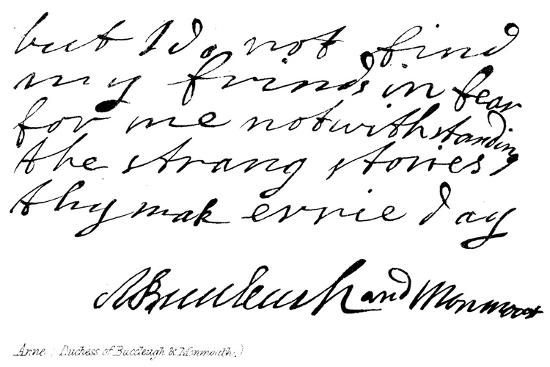 but I do not find
my frinds in fear
for me notwithstanding
the strang stories
thy mak evrie day
ABuccleuch and Monmoot
Anne (Duchess of Buccleugh & Monmouth.)